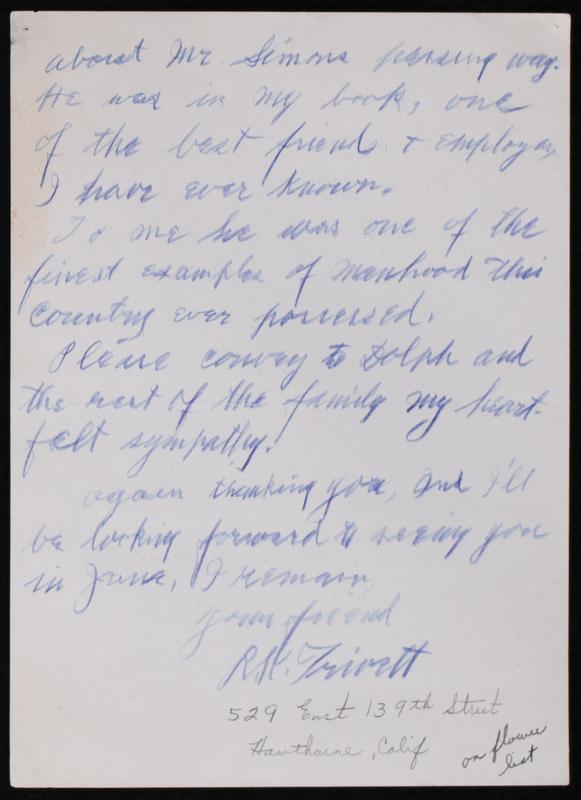 about Mr. Simons passing way.
He was in my book, one
of the best friends & employers
I have ever known.
To me he was one of the
finest examples of manhood this
Country ever possessed.
Please convey to Dolph and
the rest of the family my heart-
felt sympathy.
again thanking you, and I'll
be looking forward to seeing you
in June, I remain,
your friend
R.K. Trivett
529 East 139th Street
Hawthorne, Calif
on flower
list